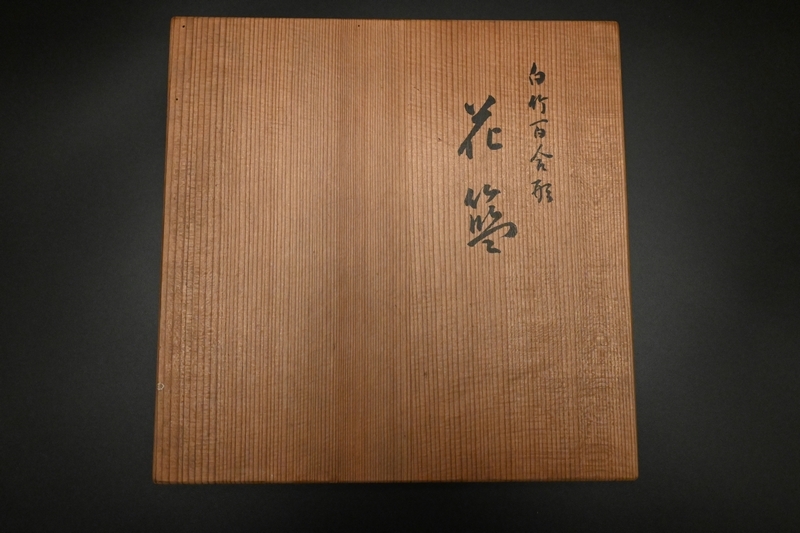 白竹百合形
花籃